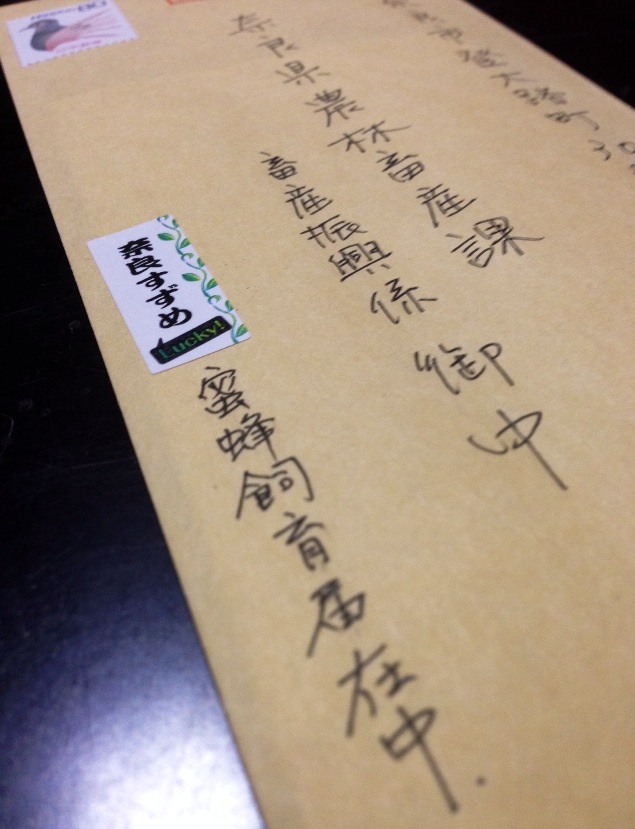 奈良市登大路町30
奈良県農林畜産課
畜産振興係 御中
蜜蜂飼育届在中.
奈良すずめ
Lucky!
NIPPON 80